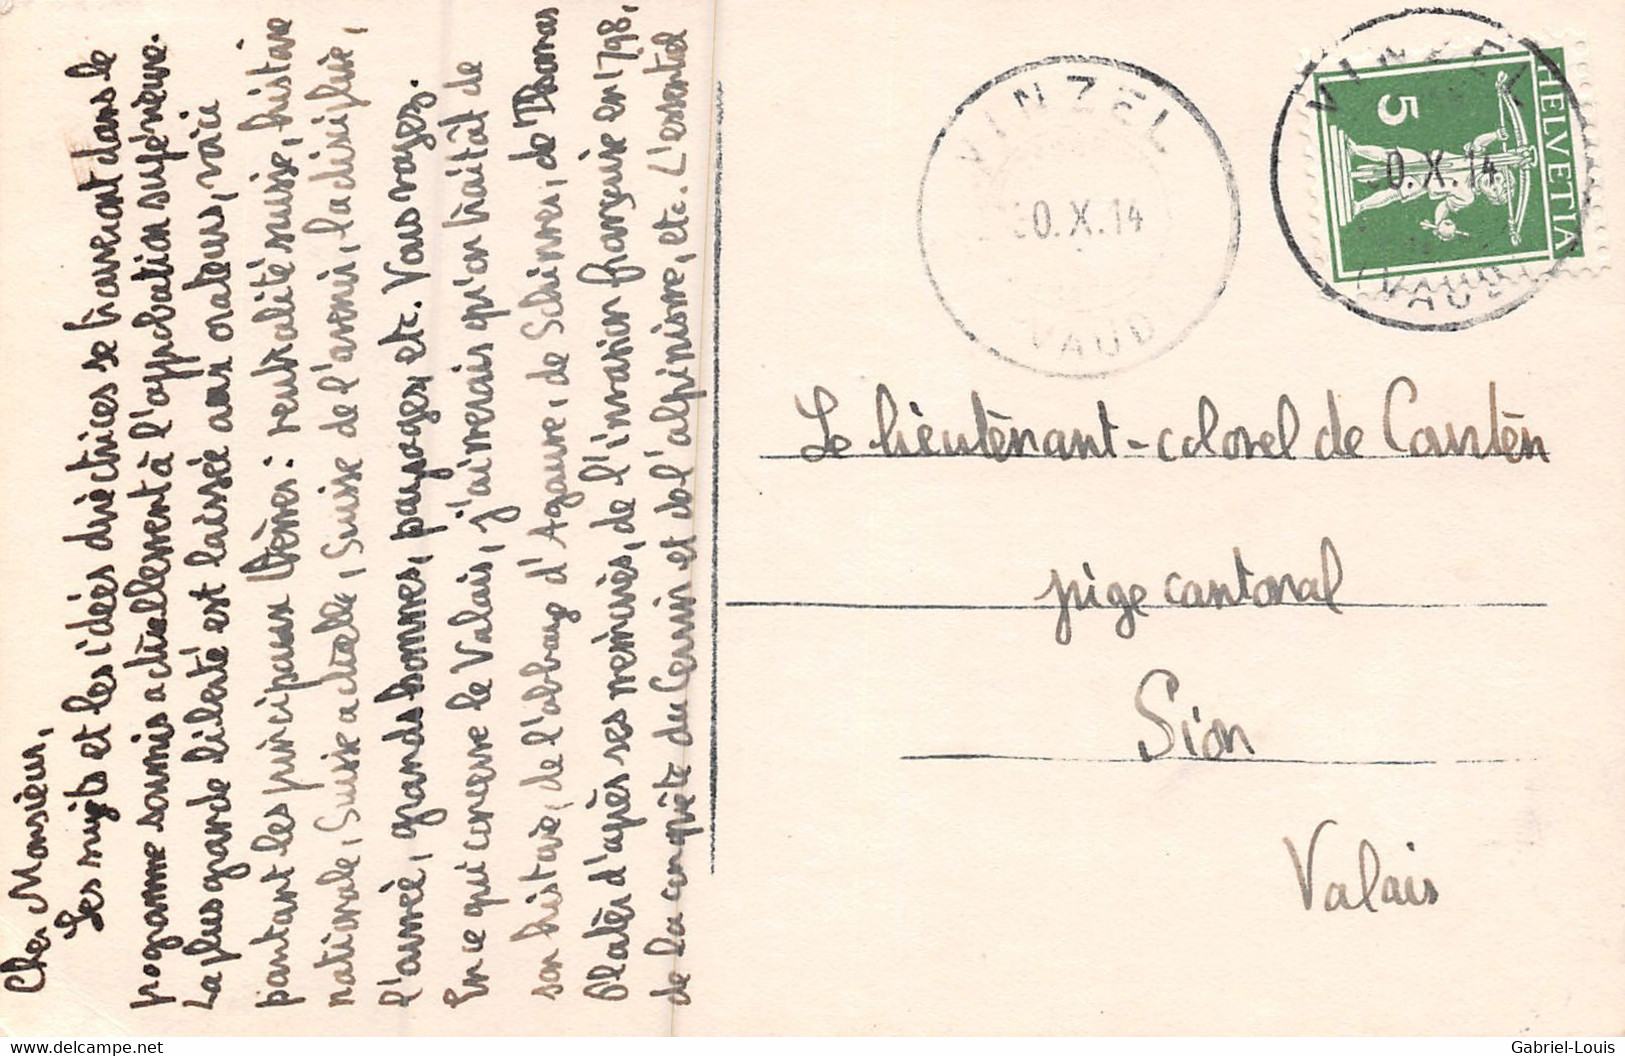 Cher Monsieur,
Les sujets et les idées directrices se trouveront dans le
programme soumis actuellement à l'approbation supérieure.
La plus grande liberté est laissée aux orateurs, voici
pourtant les principaux thèmes : neutralité suisse, histoire
nationale, Suisse actuelle, Suisse de l'avenir, la discipline,
l'armée, grands hommes, paysages, etc. Vous voyez.
En ce qui concerne le Valais, j'aimerais qu'on traitât de
son histoire, de l'abbaye d'Agaune, de Schinner, de Thomas
Platter d'après ses mémoires, de l'invasion française en 1798,
de la conquête du Cervin et de l'alpinisme, etc. L'essentiel
VINZEL
0.X.14
VAUD
VINZEL
0.X.14
(VAUD)
HELVETIA
5
Le lieutenant-colonel de Courten
juge cantonal
Sion
Valais
delcampe.net
Gabriel-Louis